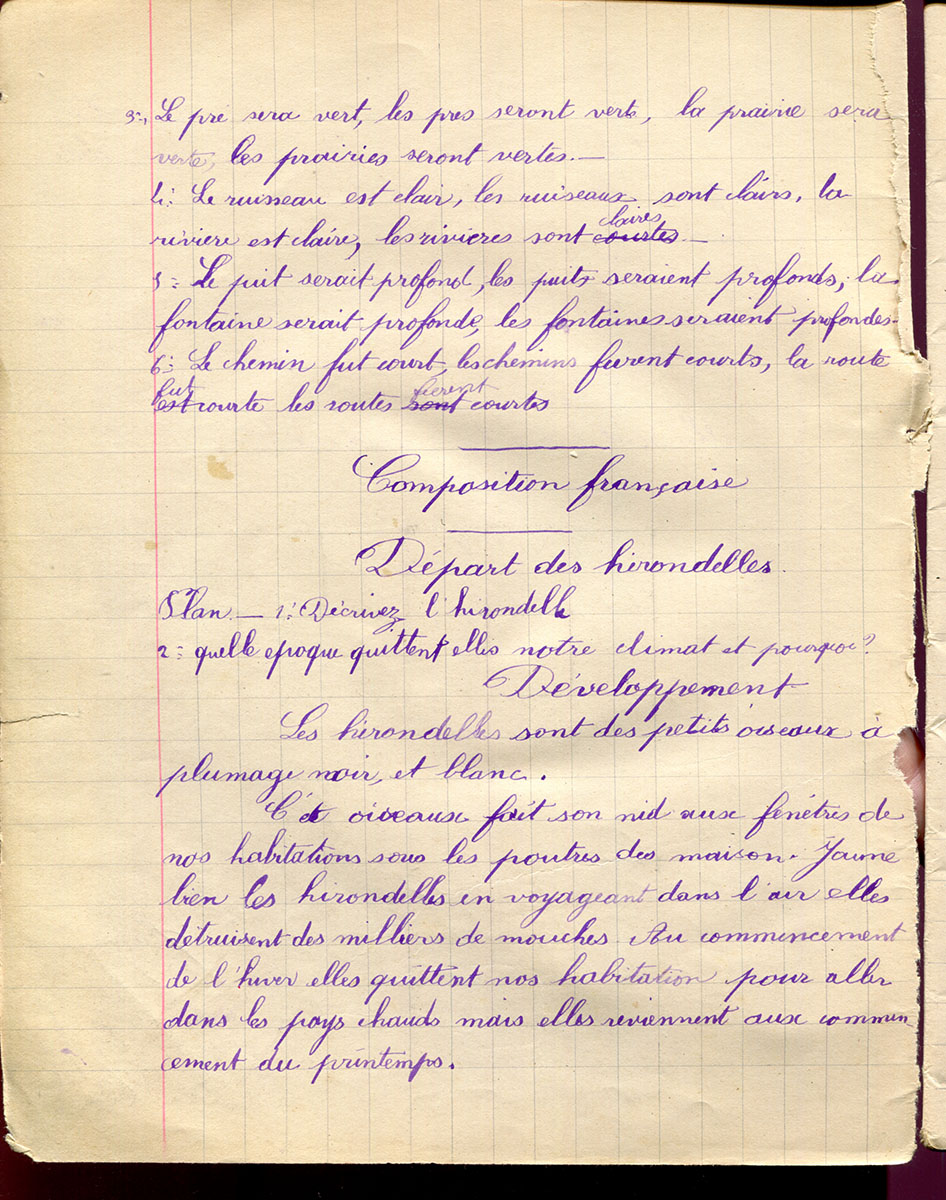 3=, Le pré sera vert, les pres seront verts, la prairie sera
verte, les prairies seront vertes.—
4=: Le ruisseau est clair, les ruiseaux sont clairs, la
rivière est claire, les rivieres sont courtes claires.—
5= Le puit serait profond, les puits seraient profonds, la
fontaine serait profonde, les fontaines seraient profondes-
6=: Le chemin fut court, les chemins furent courts, la route
est fut courte les routes sont furent courtes
Composition française
Départ des hirondelles.
Plan.— 1=: Décrivez l'hirondelle
2= quelle epoque quittent elles notre climat et pourquoi?
Développement
Les hirondelles sont des petits oiseaux à
plumage noir, et blanc.
C'et oiseaux fait son nid aux fenêtres de
nos habitations sous les poutres des maison. J'aime
bien les hirondelles en voyageant dans l'air elles
détruisent des milliers de mouches. Au commencement
de l'hiver elles quittent nos habitation pour aller
dans les pays chauds mais elles reviennent aux commen
cement du printemps.